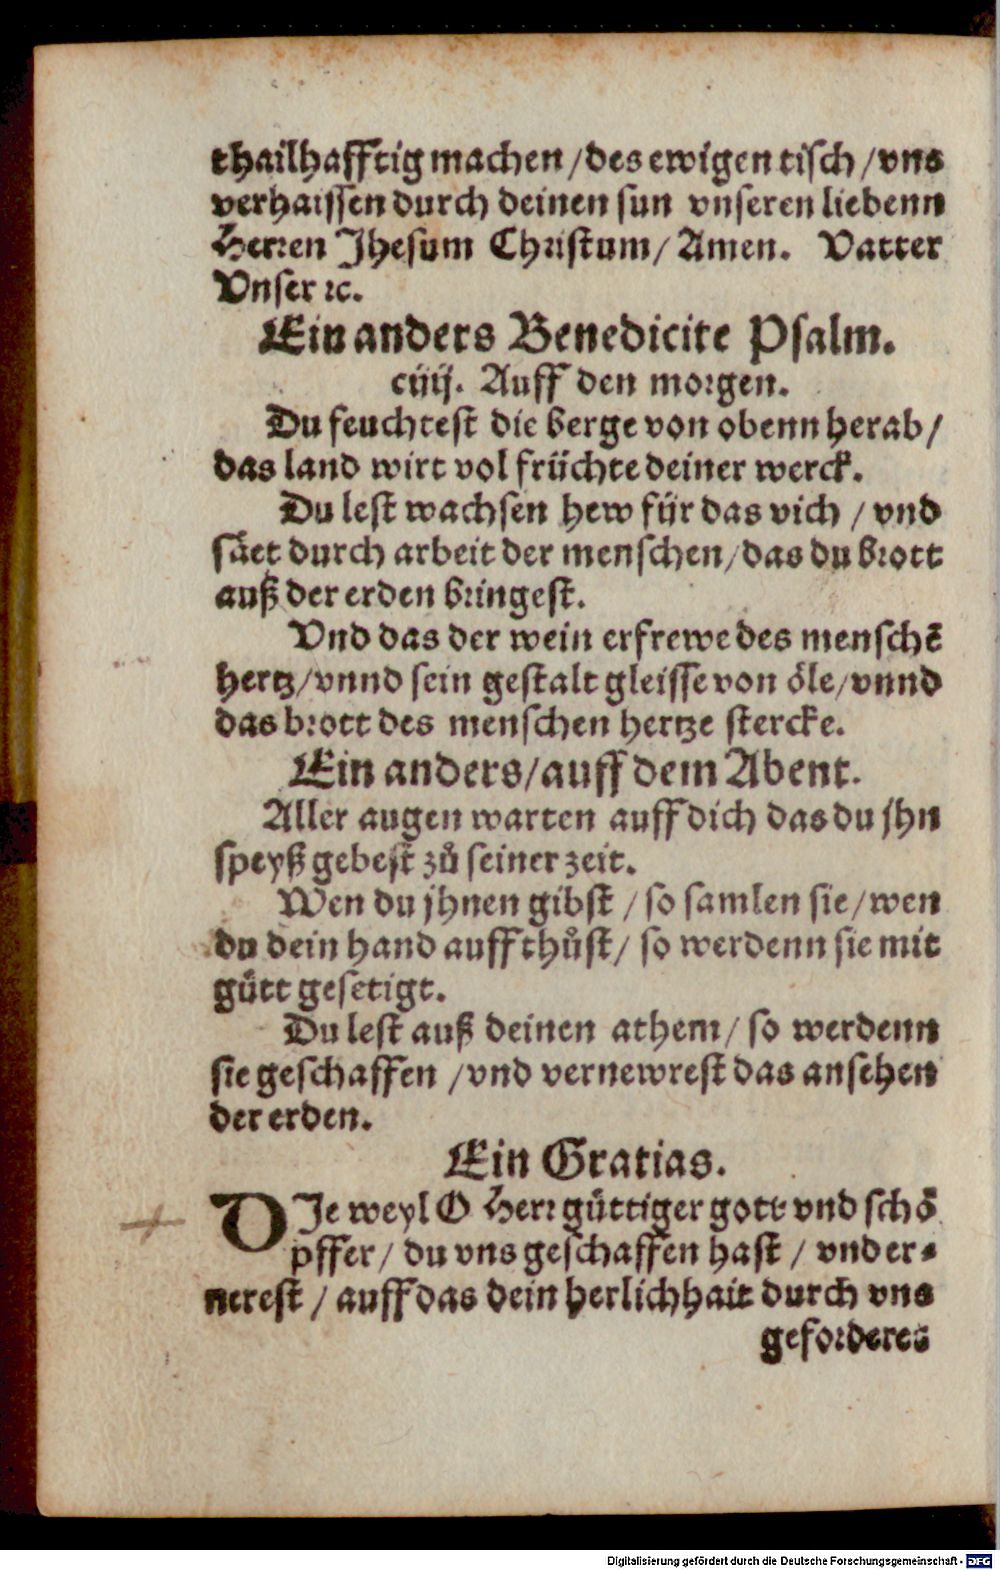 thailhafftig machen / des ewigen tisch / vns
verhaissen durch deinen sun vnseren liebenn
Herren Jhesum Christum / Amen. Vatter
Vnser ꝛc.
Ein anders Benedicite Psalm.
ciiij. Auff den morgen.
Du feuchtest die berge von obenn herab /
das land wirt vol früchte deiner werck.
Du lest wachsen hew für das vich / vnd
säet durch arbeit der menschen / das du brott
auß der erden bringest.
Vnd das der wein erfrewe des menschē
hertz / vnnd sein gestalt gleisse von öle / vnnd
das brott des menschen hertze stercke.
Ein anders / auff dem Abent.
Aller augen warten auff dich das du jhn
speyß gebest zů seiner zeit.
Wen du jhnen gibst / so samlen sie / wen
du dein hand auff thůst / so werdenn sie mit
gůtt gesetigt.
Du lest auß deinen athem / so werdenn
sie geschaffen / vnd vernewrest das ansehen
der erden.
Ein Gratias.
DJe weyl O Herr güttiger gott vnd schö
pffer / du vns geschaffen hast / vnd er-
nerest / auff das dein herlichhait durch vns
geforderet
Digitalisierung gefördert durch die Deutsche Forschungsgemeinschaft - DFG